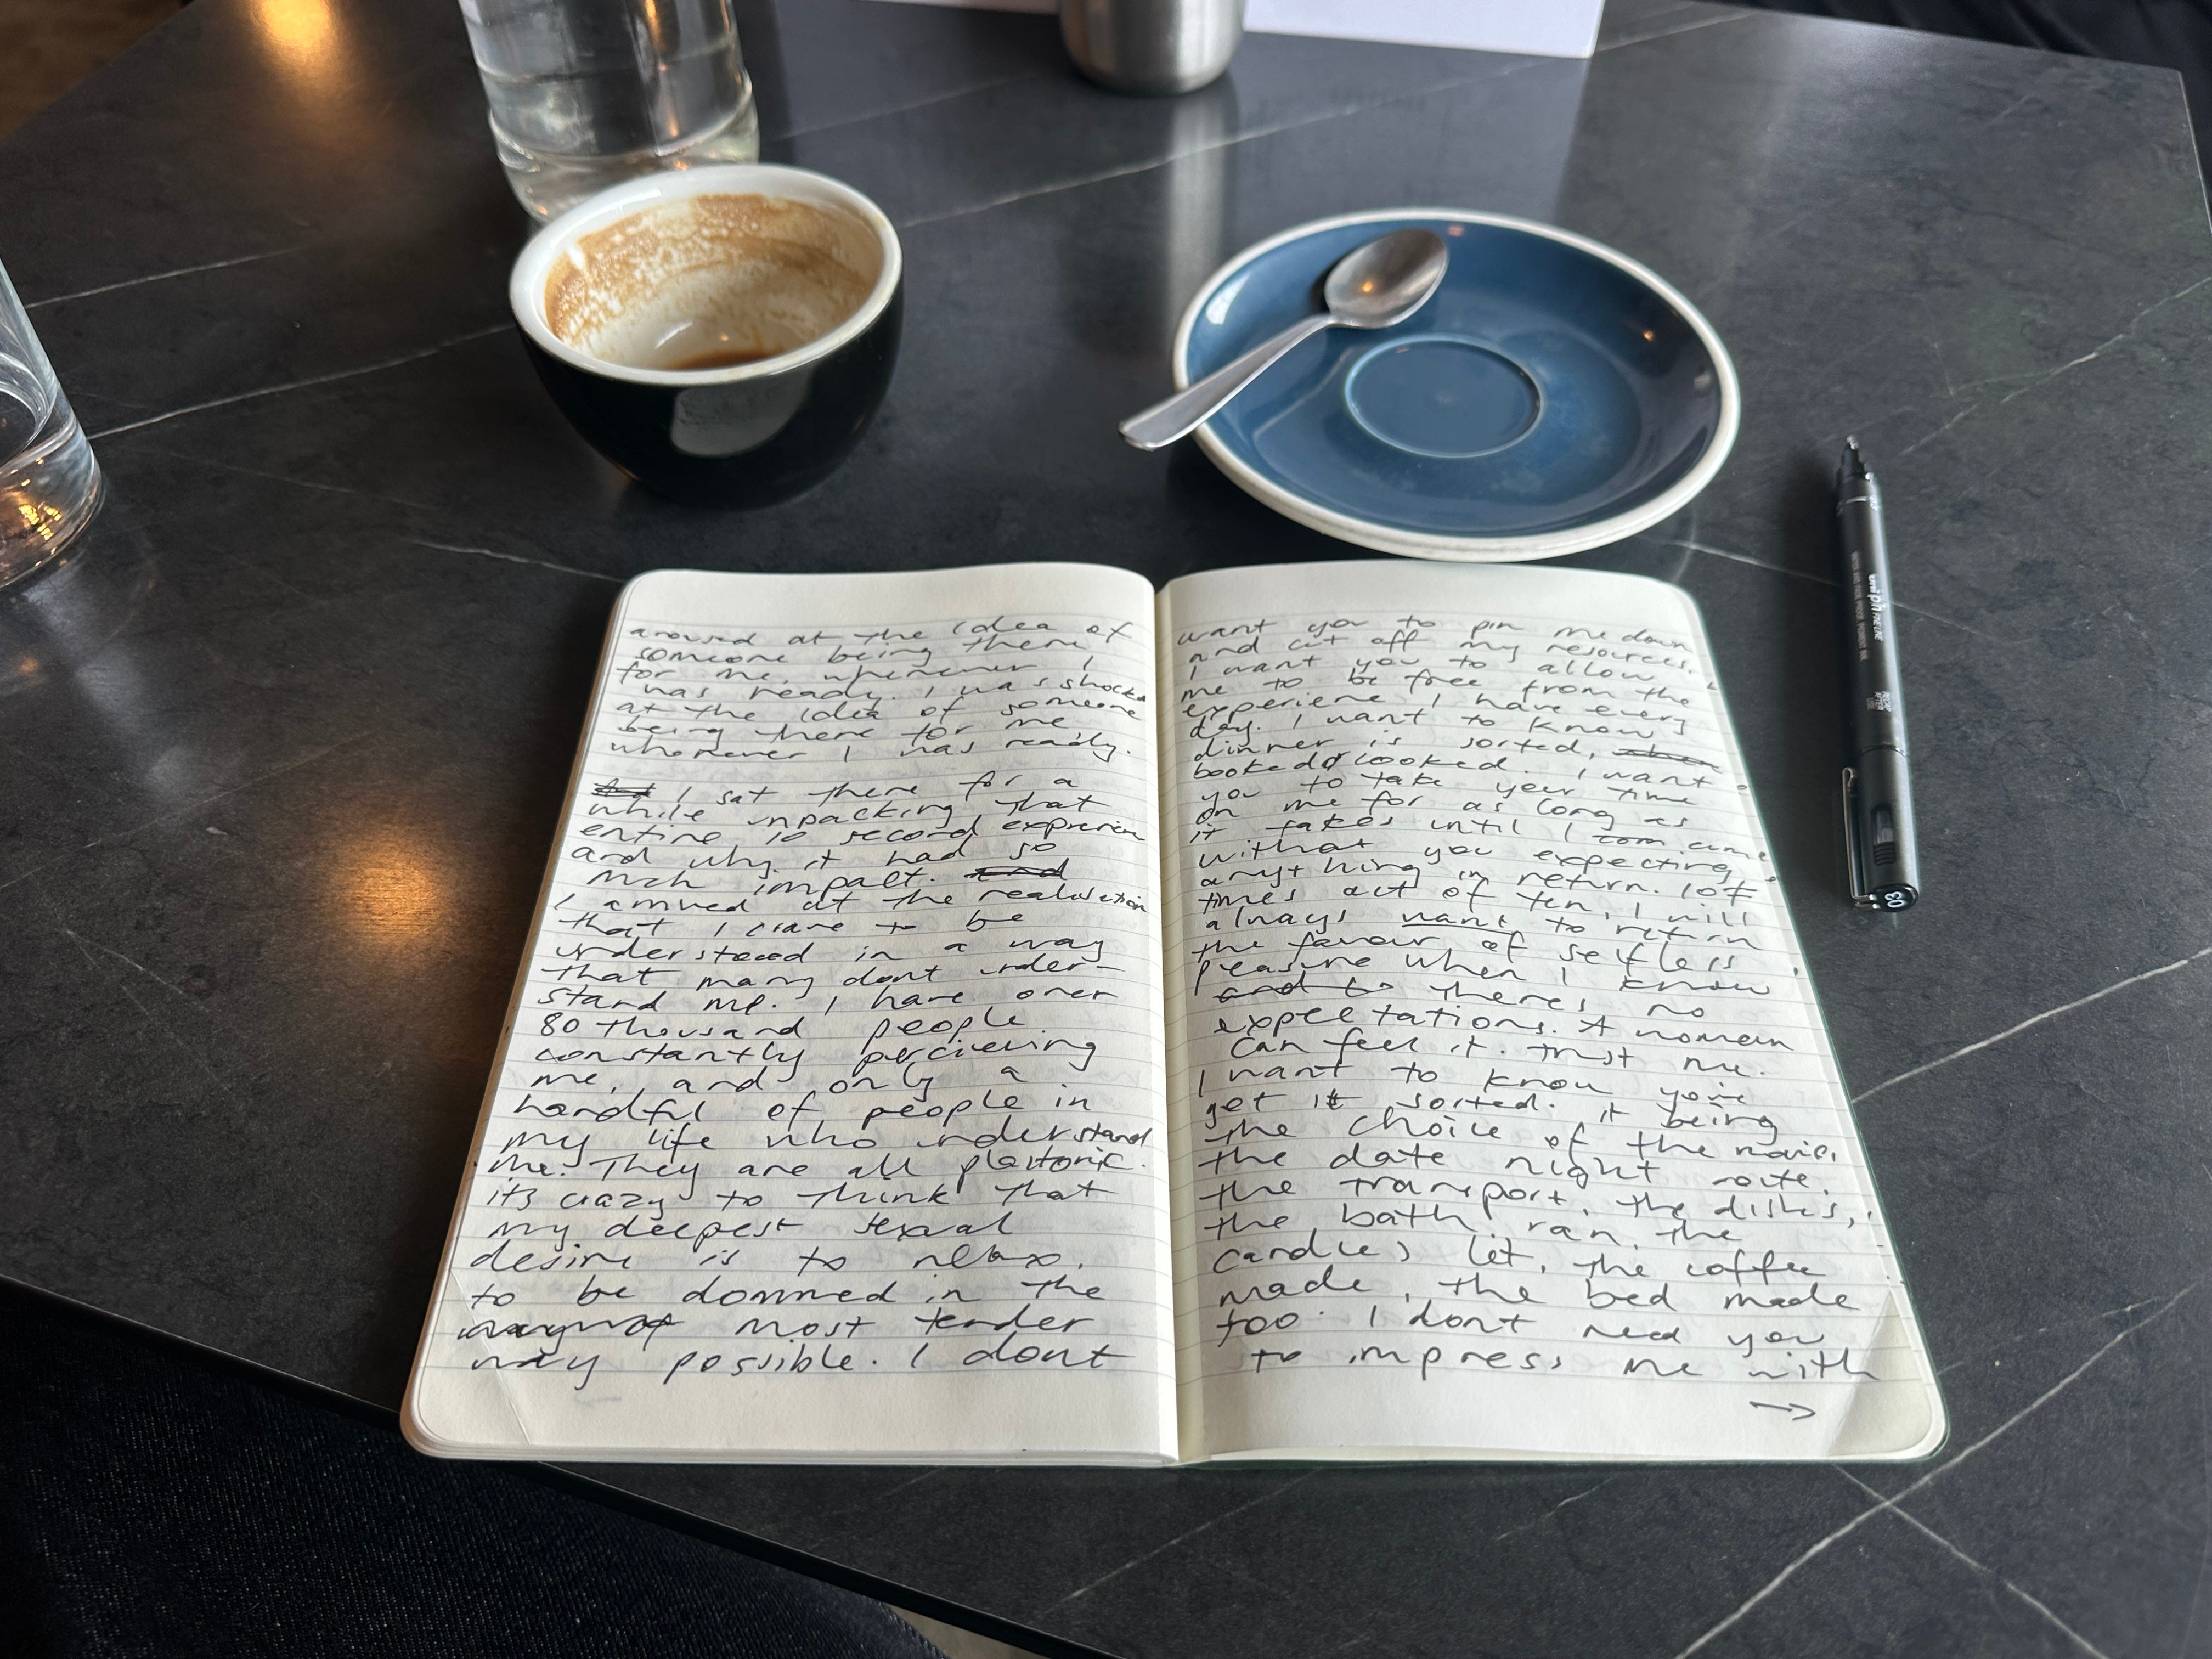 aroused at the idea of
someone being there
for me, whenever I
was ready. I was shocked
at the idea of someone
being there for me
whenever I was ready.
I sat there for a
while unpacking that
entire 10 second experience
and why it had so
much impact. and
I arrived at the realisation
that I crave to be
understood in a way
that many dont under-
stand me. I have over
80 thousand people
constantly percieving
me, and only a
handful of people in
my life who understand
me. They are all platonic.
its crazy to think that
my deepest sexual
desire is to relax.
to be dommed in the
most tender
way possible. I dont
want you to pin me down
and cut off my resources.
I want you to allow
me to be free from the
experience I have every
day. I want to know
dinner is sorted,
booked or cooked. I want
you to take your time
on me for as long as
it takes until I com cume
without you expecting
anything in return. 10
times out of ten, I will
always want to return
the favour of selfless
pleasure when I know
and theres no
expectations. A woman
can feel it. trust me.
I want to know you've
get it sorted. it being
the choice of the movie,
the date night route,
the transport, the dishes,
the bath ran, the
candles lit, the coffee
made, the bed made
too. I dont need you
to impress me with
→
uni PIN FINE LINE
03